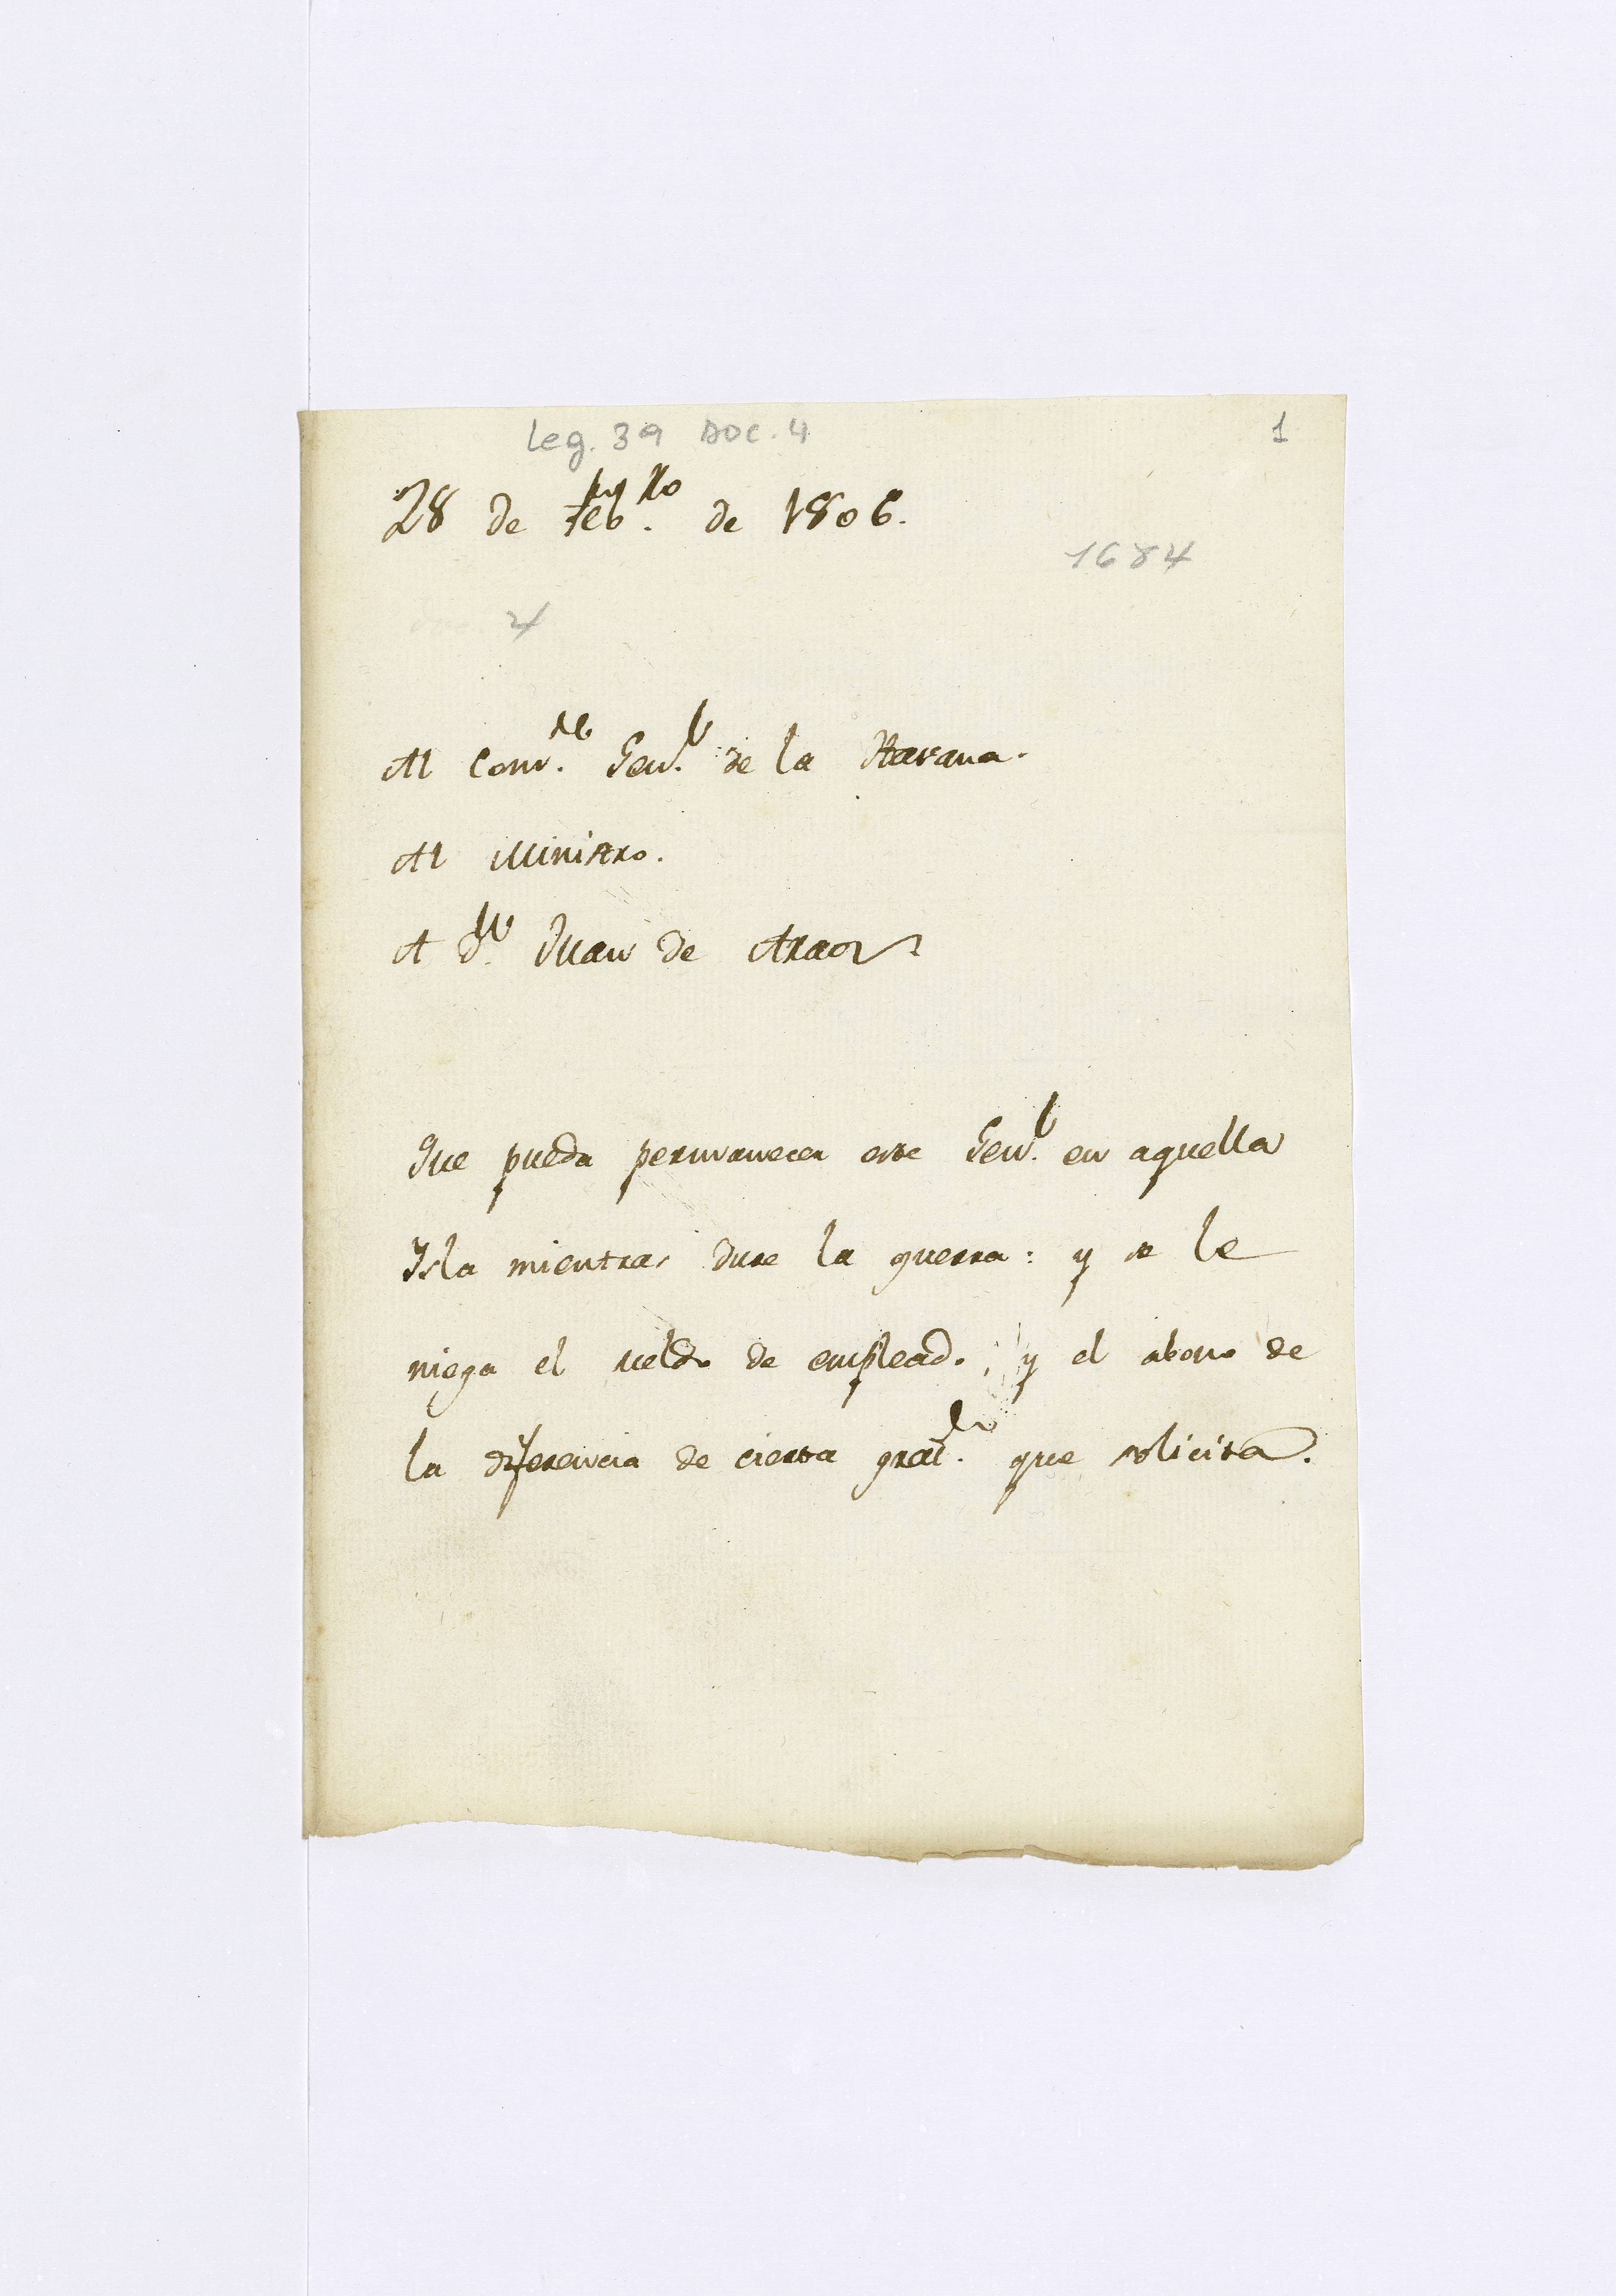 Leg. 39 Doc. 4
1
28 de Feb.ro de 1806.
1684
4
Al Com.te Gen.l de la Havana.
Al Ministro.
A D.n Juan de Araoz
Que pueda permanecer este Gen.l en aquella
Isla mientras dure la guerra: y se le
niega el sueldo de empleado, y el abono de
la diferencia de cierta grat.on que solicita.